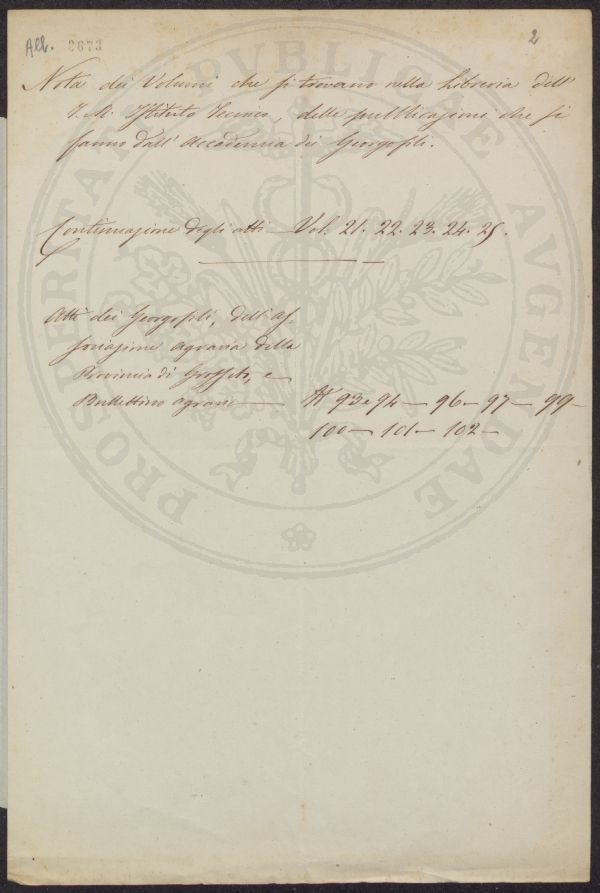 All. 2673
2
Nota dei Volumi che si trovano nella Libreria dell'
I. R. Istituto Tecnico, delle pubblicazioni che si
fanno dall' Accademia dei Georgofili.
Continuazione degli atti Vol. 21. 22. 23. 24. 25.
Atti dei Georgofili, dell' As
sociazione agraria della
Provincia di Grosseto, e
Bullettino agrario — N 93 e 94 — 96 — 97 — 99 —
100 — 101 — 102 —
PROSPERITATI PVBLICAE AVGENDAE